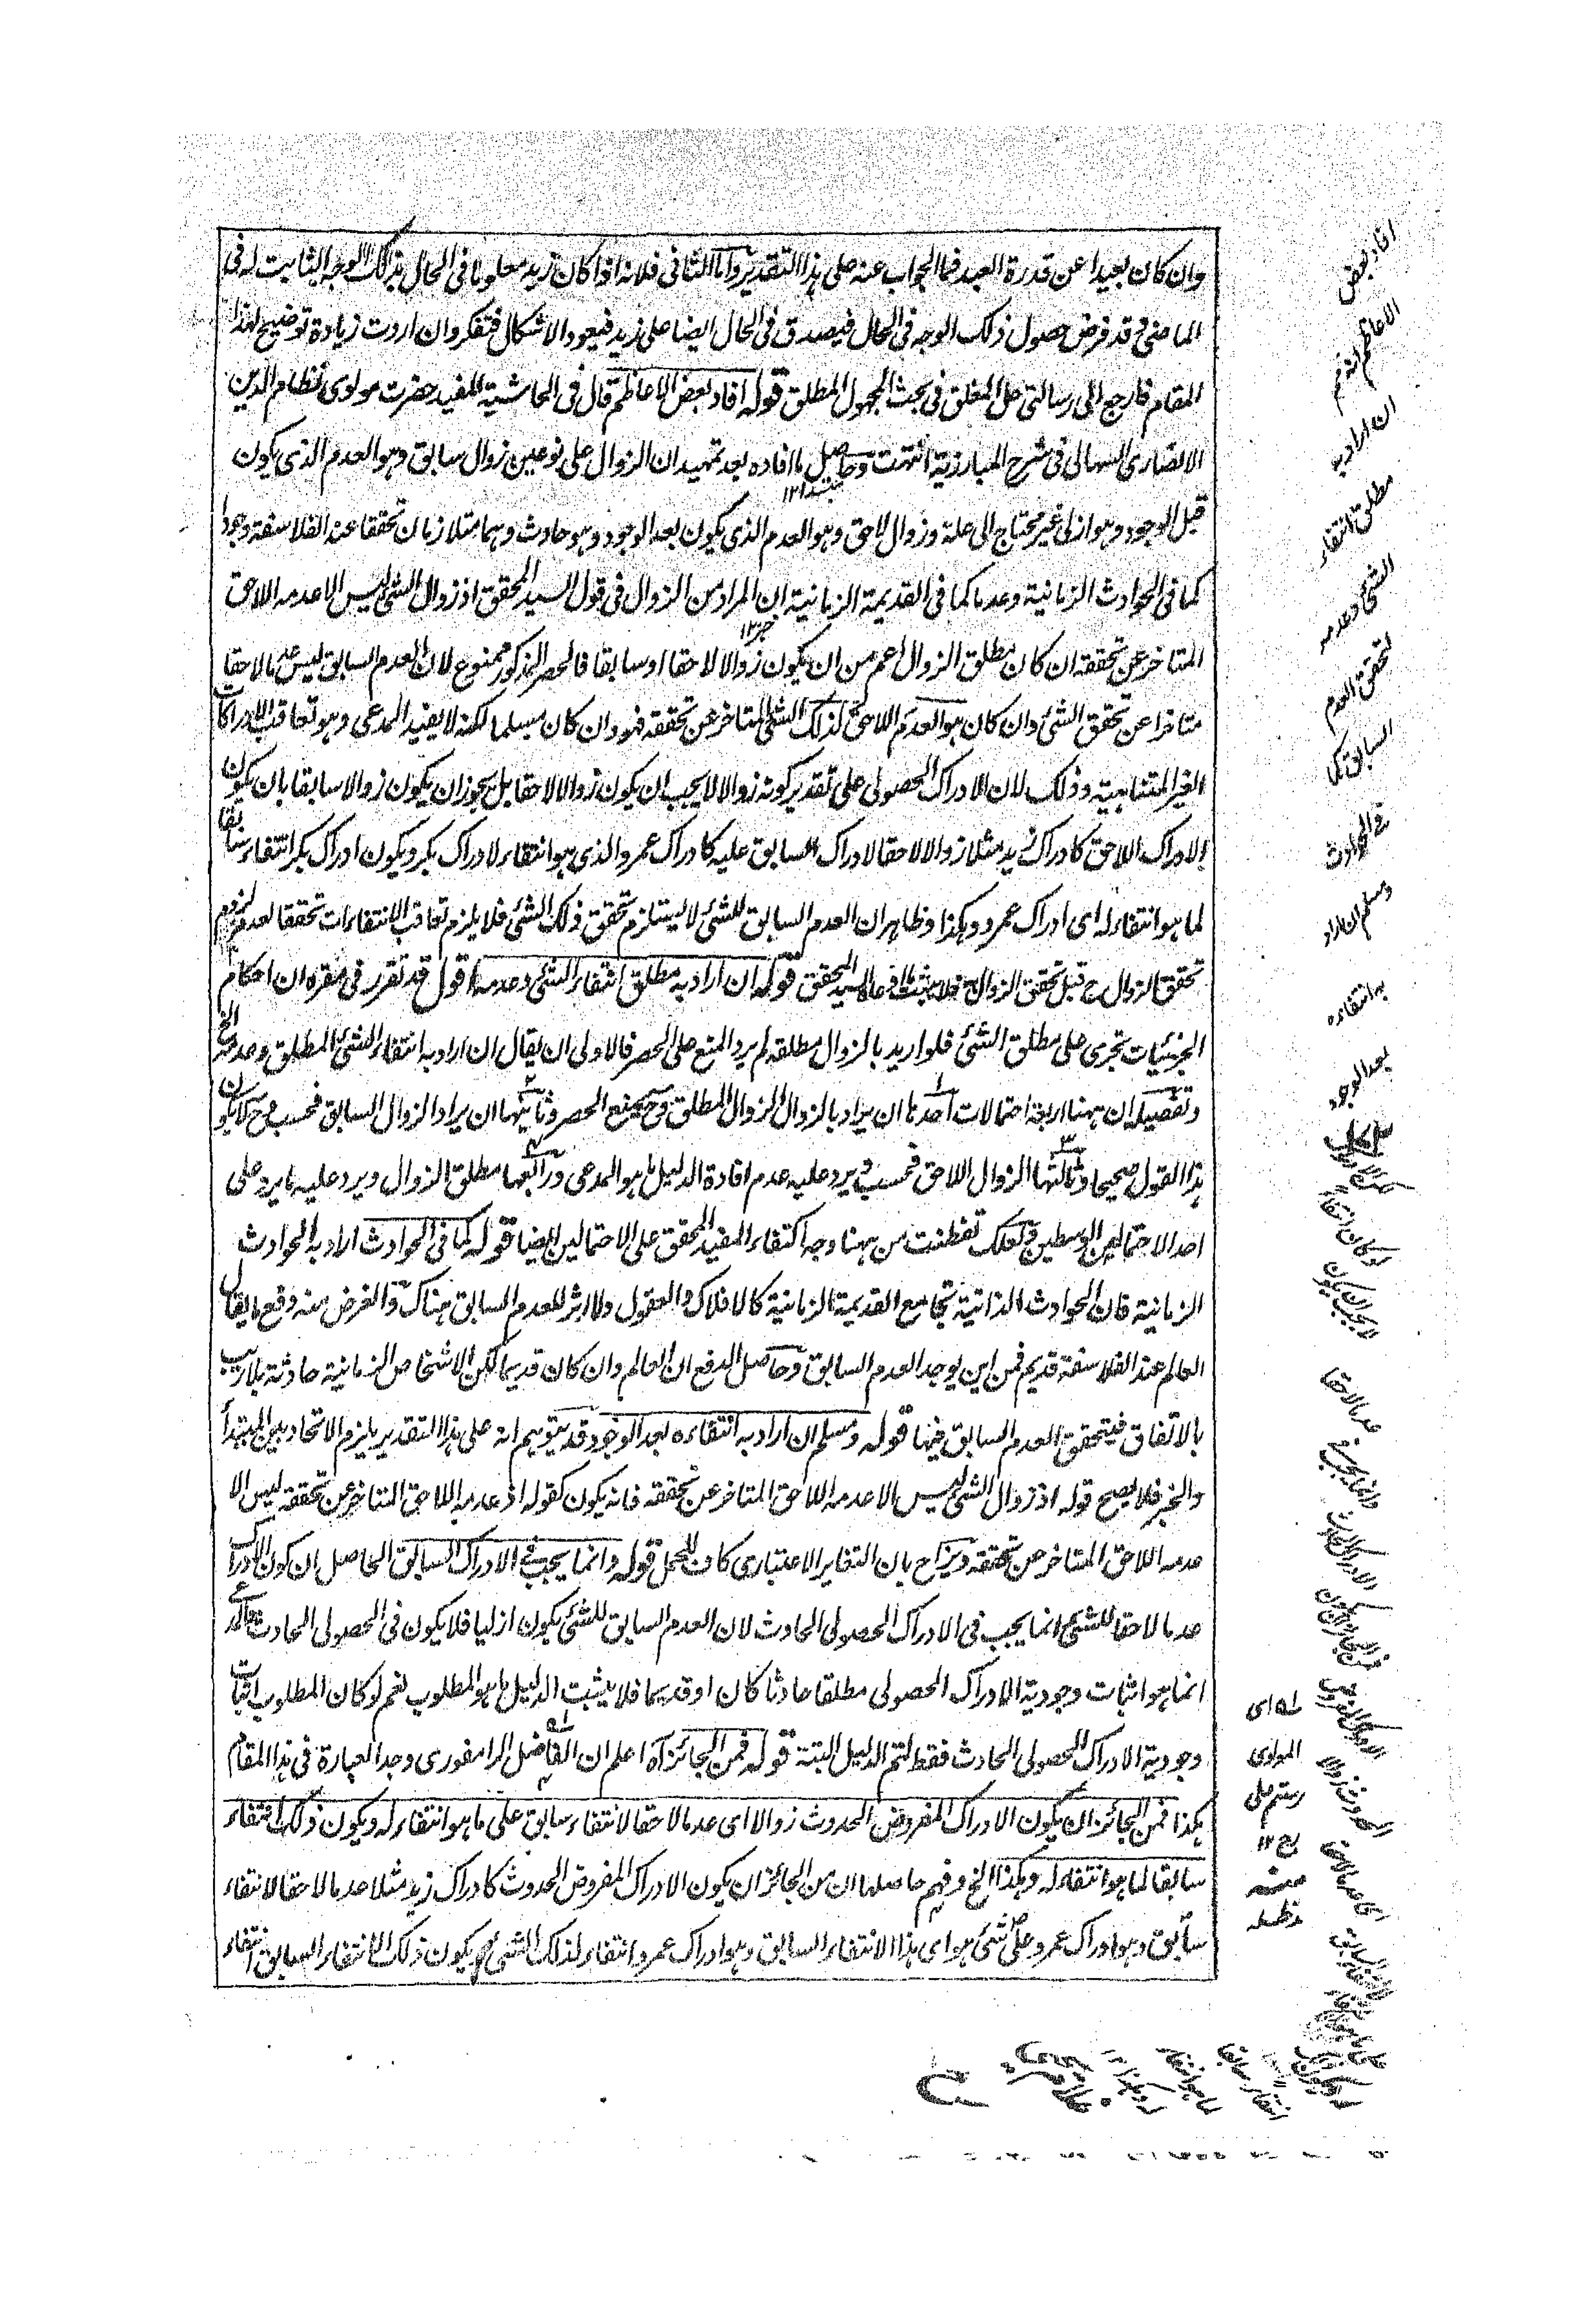 وان كان بعيدا عن قدرة العبد فما الجواب عنه على هذا التقدير واما الثاني فلانه اذا كان زيد معلوما في الحال بذلك الوجه الثابت له في
الماضي فقد فرض حصول ذلك الوجه في الحال فيصدق في الحال ايضا على زيد فيعود الاشكال فتفكر وان اردت زيادة توضيح لهذا
المقام فارجع الى رسالتي حل المغلق في بحث المجهول المطلق قوله افاد بعض الاعاظم قال في الحاشية للمفيد حضرت مولوى نظام الدين
الانصارى السهالى في شرح المبارزية انتهت وحاصل ما افاده بعد تمهيد ان الزوال على نوعين زوال سابق وهو العدم الذى يكون
قبل الوجود وهو ازلى غير محتاج الى علة وزوال لاحق وهو العدم الذى يكون بعد الوجود وهو حادث وهما متلازمان تحققا عند الفلاسفة وجودا
كما في الحوادث الزمانية وعدما كما في القديمة الزمانية ان المراد من الزوال في قول السيد المحقق اذ زوال الشئ ليس الا عدمه اللاحق
المتاخر عن تحققه ان كان مطلق الزوال اعم من ان يكون زوالا لاحقا او سابقا فالحصر المذكور ممنوع لان العدم السابق ليس عدما لاحقا
متاخرا عن تحقق الشئ وان كان هو العدم اللاحق لذلك الشئ المتاخر عن تحققه فهو وان كان مسلما لكنه لا يفيد المدعى وهو تعاقب الادراكات
الغير المتناهية وذلك لان الادراك الحصولى على تقدير كونه زوالا لا يجب ان يكون زوالا لاحقا بل يجوز ان يكون زوالا سابقا بان يكون
الادراك اللاحق كادراك زيد مثلا زوالا لاحقا لادراك السابق عليه كادراك عمرو الذى هو انتفاء لادراك بكر ويكون ادراك بكر انتفاء سابقا
لما هو انتفاء له اى ادراك عمرو وهكذا وظاهر ان العدم السابق للشئ لا يستلزم تحقق ذلك الشئ فلا يلزم تعاقب الانتفاءات تحققا لعدم لزوم
تحقق الزوال ح قبل تحقق الزوال فلا يثبت ما ادعاه السيد المحقق قوله ان اراد به مطلق انتفاء الشئ وعدمه اقول قد تقرر في مقره ان احكام
الجزئيات تجرى على مطلق الشئ فلو اريد بالزوال مطلقه لم يرد المنع على الحصر فالاولى ان يقال ان اراد به انتفاء الشئ المطلق وعدمه الخ
وتفصيله ان ههنا اربعة احتمالات احدها ان يراد بالزوال الزوال المطلق وح يمنع الحصر وثانيها ان يراد الزوال السابق فحسب وح لا يكون
هذا القول صحيحا وثالثها الزوال اللاحق فحسب ويرد عليه عدم افادة الدليل ما هو المدعى ورابعها مطلق الزوال ويرد عليه ما يرد على
احد الاحتمالين الوسطين ولعلك تفطنت من ههنا وجه اكتفاء المفيد المحقق على الاحتمالين ايضا قوله كما في الحوادث اراد به الحوادث
الزمانية فان الحوادث الذاتية تجامع القديمة الزمانية كالافلاك والعقول ولا اثر للعدم السابق هناك والغرض منه دفع ما يقال
العالم عند الفلاسفة قديم فمن اين يوجد العدم السابق وحاصل الدفع ان العالم وان كان قديما لكن الاشخاص الزمانية حادثة بلا ريب
بالاتفاق فيتحقق العدم السابق فيها قوله ومسلم ان اراد به انتفاءه بعد الوجود قد يتوهم انه على هذا التقدير يلزم الاتحاد بين المبتدأ
والخبر فلا يصح قوله اذ زوال الشئ ليس الا عدمه اللاحق المتاخر عن تحققه فانه يكون كقوله اذ عدمه اللاحق المتاخر عن تحققه ليس الا
عدمه اللاحق المتاخر عن تحققه ويزاح بان التغاير الاعتبارى كاف للحمل قوله وانما يجب في الادراك السابق الحاصل ان كون الادراك
عدما لاحقا للشئ انما يجب في الادراك الحصولى الحادث لان العدم السابق للشئ يكون ازليا فلا يكون في الحصولى الحادث والمدعى
انما هو اثبات وجودية الادراك الحصولى مطلقا حادثا كان او قديما فلا يثبت الدليل ما هو المطلوب نعم لو كان المطلوب اثبات
وجودية الادراك الحصولى الحادث فقط لتم الدليل البتة قوله فمن الجائز آه اعلم ان الفاضل الرامفورى وجد العبارة في هذا المقام
هكذا فمن الجائز ان يكون الادراك المفروض الحدوث زوالا اى عدما لاحقا لانتفاء سابق على ما هو انتفاء له ويكون ذلك انتفاء
سابقا لما هو انتفاء له وهكذا الخ وفهم حاصلها ان من الجائز ان يكون الادراك المفروض الحدوث كادراك زيد مثلا عدما لاحقا لانتفاء
سابق وهو ادراك عمرو على شئ هو اى هذا الانتفاء السابق وهو ادراك عمرو انتفاء لذلك الشئ ويكون ذلك الانتفاء السابق انتفاء
افاد بعض
الاعاظم انه
ان اراد به
مطلق انتفاء
الشئ وعدمه
لتحقق العدم
السابق كما
في الحوادث
ومسلم ان اراد
به انتفاءه
بعد الوجود
لا يجب ان يكون
عدما لاحقا
اى
المولوى
رستم على
منه
مدظله